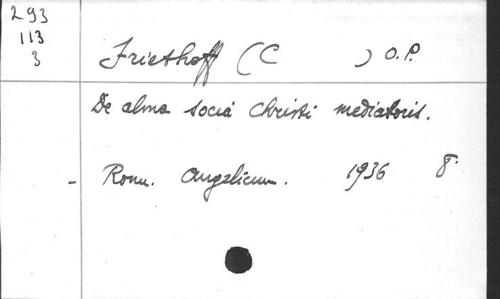 293
113
3
Friethoff (C ) O.P.
De alma socia Christi mediatoris.
- Rom. Angelicum. 1936 8°